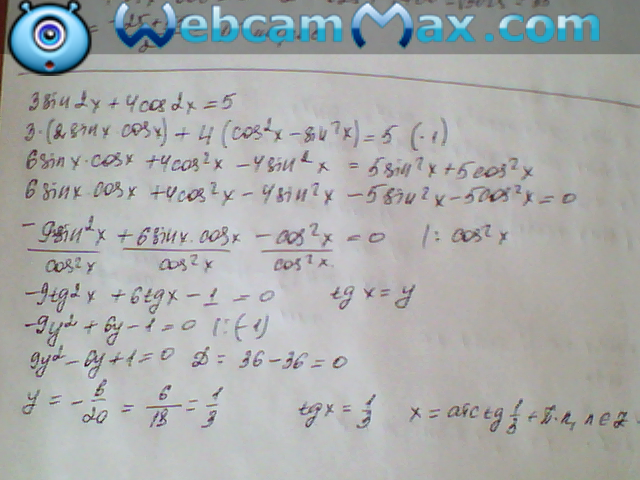 WebcamMax.com
3sin2x+4cos2x=5
3·(2sinx cosx)+4(cos²x-sin²x)=5 (·1)
6sinx·cosx+4cos²x-4sin²x=5sin²x+5cos²x
6sinx·cosx+4cos²x-4sin²x-5sin²x-5cos²x=0
-9sin²x/cos²x+6sinx·cosx/cos²x-cos²x/cos²x=0 |: cos²x
-9tg²x+6tgx-1=0 tgx=y
-9y²+6y-1=0 |:(-1)
9y²-6y+1=0 D=36-36=0
y=-b/2a=6/18=1/3 tgx=1/3 x=arctg 1/3+π·n, n∈Z